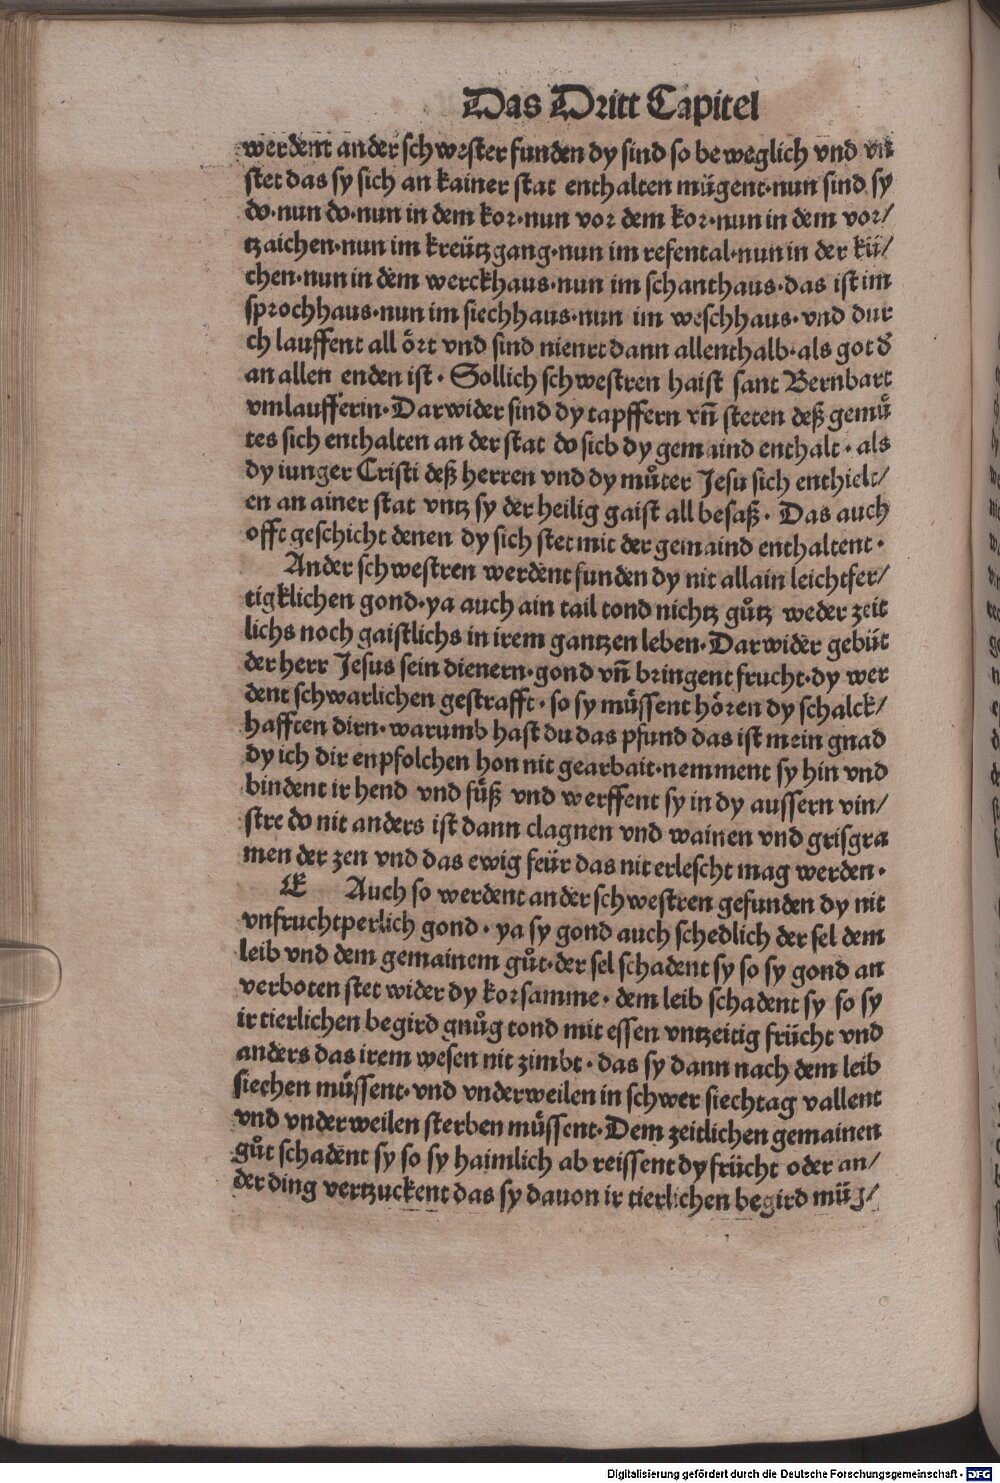 Das Dritt Capitel
werdent ander schwester funden dy sind so beweglich vnd vn
stet das sy sich an kainer stat enthalten mügent·nun sind sy
do·nun do·nun in dem kor·nun vor dem kor·nun in dem vor/
tzaichen·nun im kreützgang·nun im refental·nun in der kü/
chen·nun in dem werckhaus·nun im schanthaus·das ist im
sprochhaus·nun im siechhaus·nun im weschhaus·vnd dur
ch lauffent all ört vnd sind nienrt dann allenthalb·als got d̕
an allen enden ist· Sollich schwestren haist sant Bernhart
vmlaufferin·Darwider sind dy tapffern vn̄ steten deß gemuͤ
tes sich enthalten an der stat do sich dy gemaind enthalt·als
dy iunger Cristi deß herren vnd dy muͦter Jesu sich enthielt/
en an ainer stat vntz sy der heilig gaist all besaß· Das auch
offt geschicht denen dy sich stet mit der gemaind enthaltent·
Ander schwestren werdent funden dy nit allain leichtfer/
tigklichen gond·ya auch ain tail tond nichtz guͦtz weder zeit
lichs noch gaistlichs in irem gantzen leben·Darwider gebüt
der herr Jesus sein dienern·gond vn̄ bringent frucht·dy wer
dent schwarlichen gestrafft·so sy muͤssent hören dy schalck/
hafften dirn·warumb hast du das pfund das ist mein gnad
dy ich dir enpfolchen hon nit gearbait·nemment sy hin vnd
bindent ir hend vnd fuͤß vnd werffent sy in dy aussern vin/
stre do nit anders ist dann clagnen vnd wainen vnd grisgra
men der zen vnd das ewig feür das nit erlescht mag werden·
E Auch so werdent ander schwestren gefunden dy nit
vnfruchtperlich gond·ya sy gond auch schedlich der sel dem
leib vnd dem gemainem guͦt·der sel schadent sy so sy gond an
verboten stet wider dy korsamme·dem leib schadent sy so sy
ir tierlichen begird gnuͦg tond mit essen vntzeitig frücht vnd
anders das irem wesen nit zimbt·das sy dann nach dem leib
siechen muͤssent·vnd vnderweilen in schwer siechtag vallent
vnd vnderweilen sterben muͤssent·Dem zeitlichen gemainen
guͦt schadent sy so sy haimlich ab reissent dy frücht oder an/
der ding vertzuckent das sy dauon ir tierlichen begird müg/
Digitalisierung gefördert durch die Deutsche Forschungsgemeinschaft · DFG